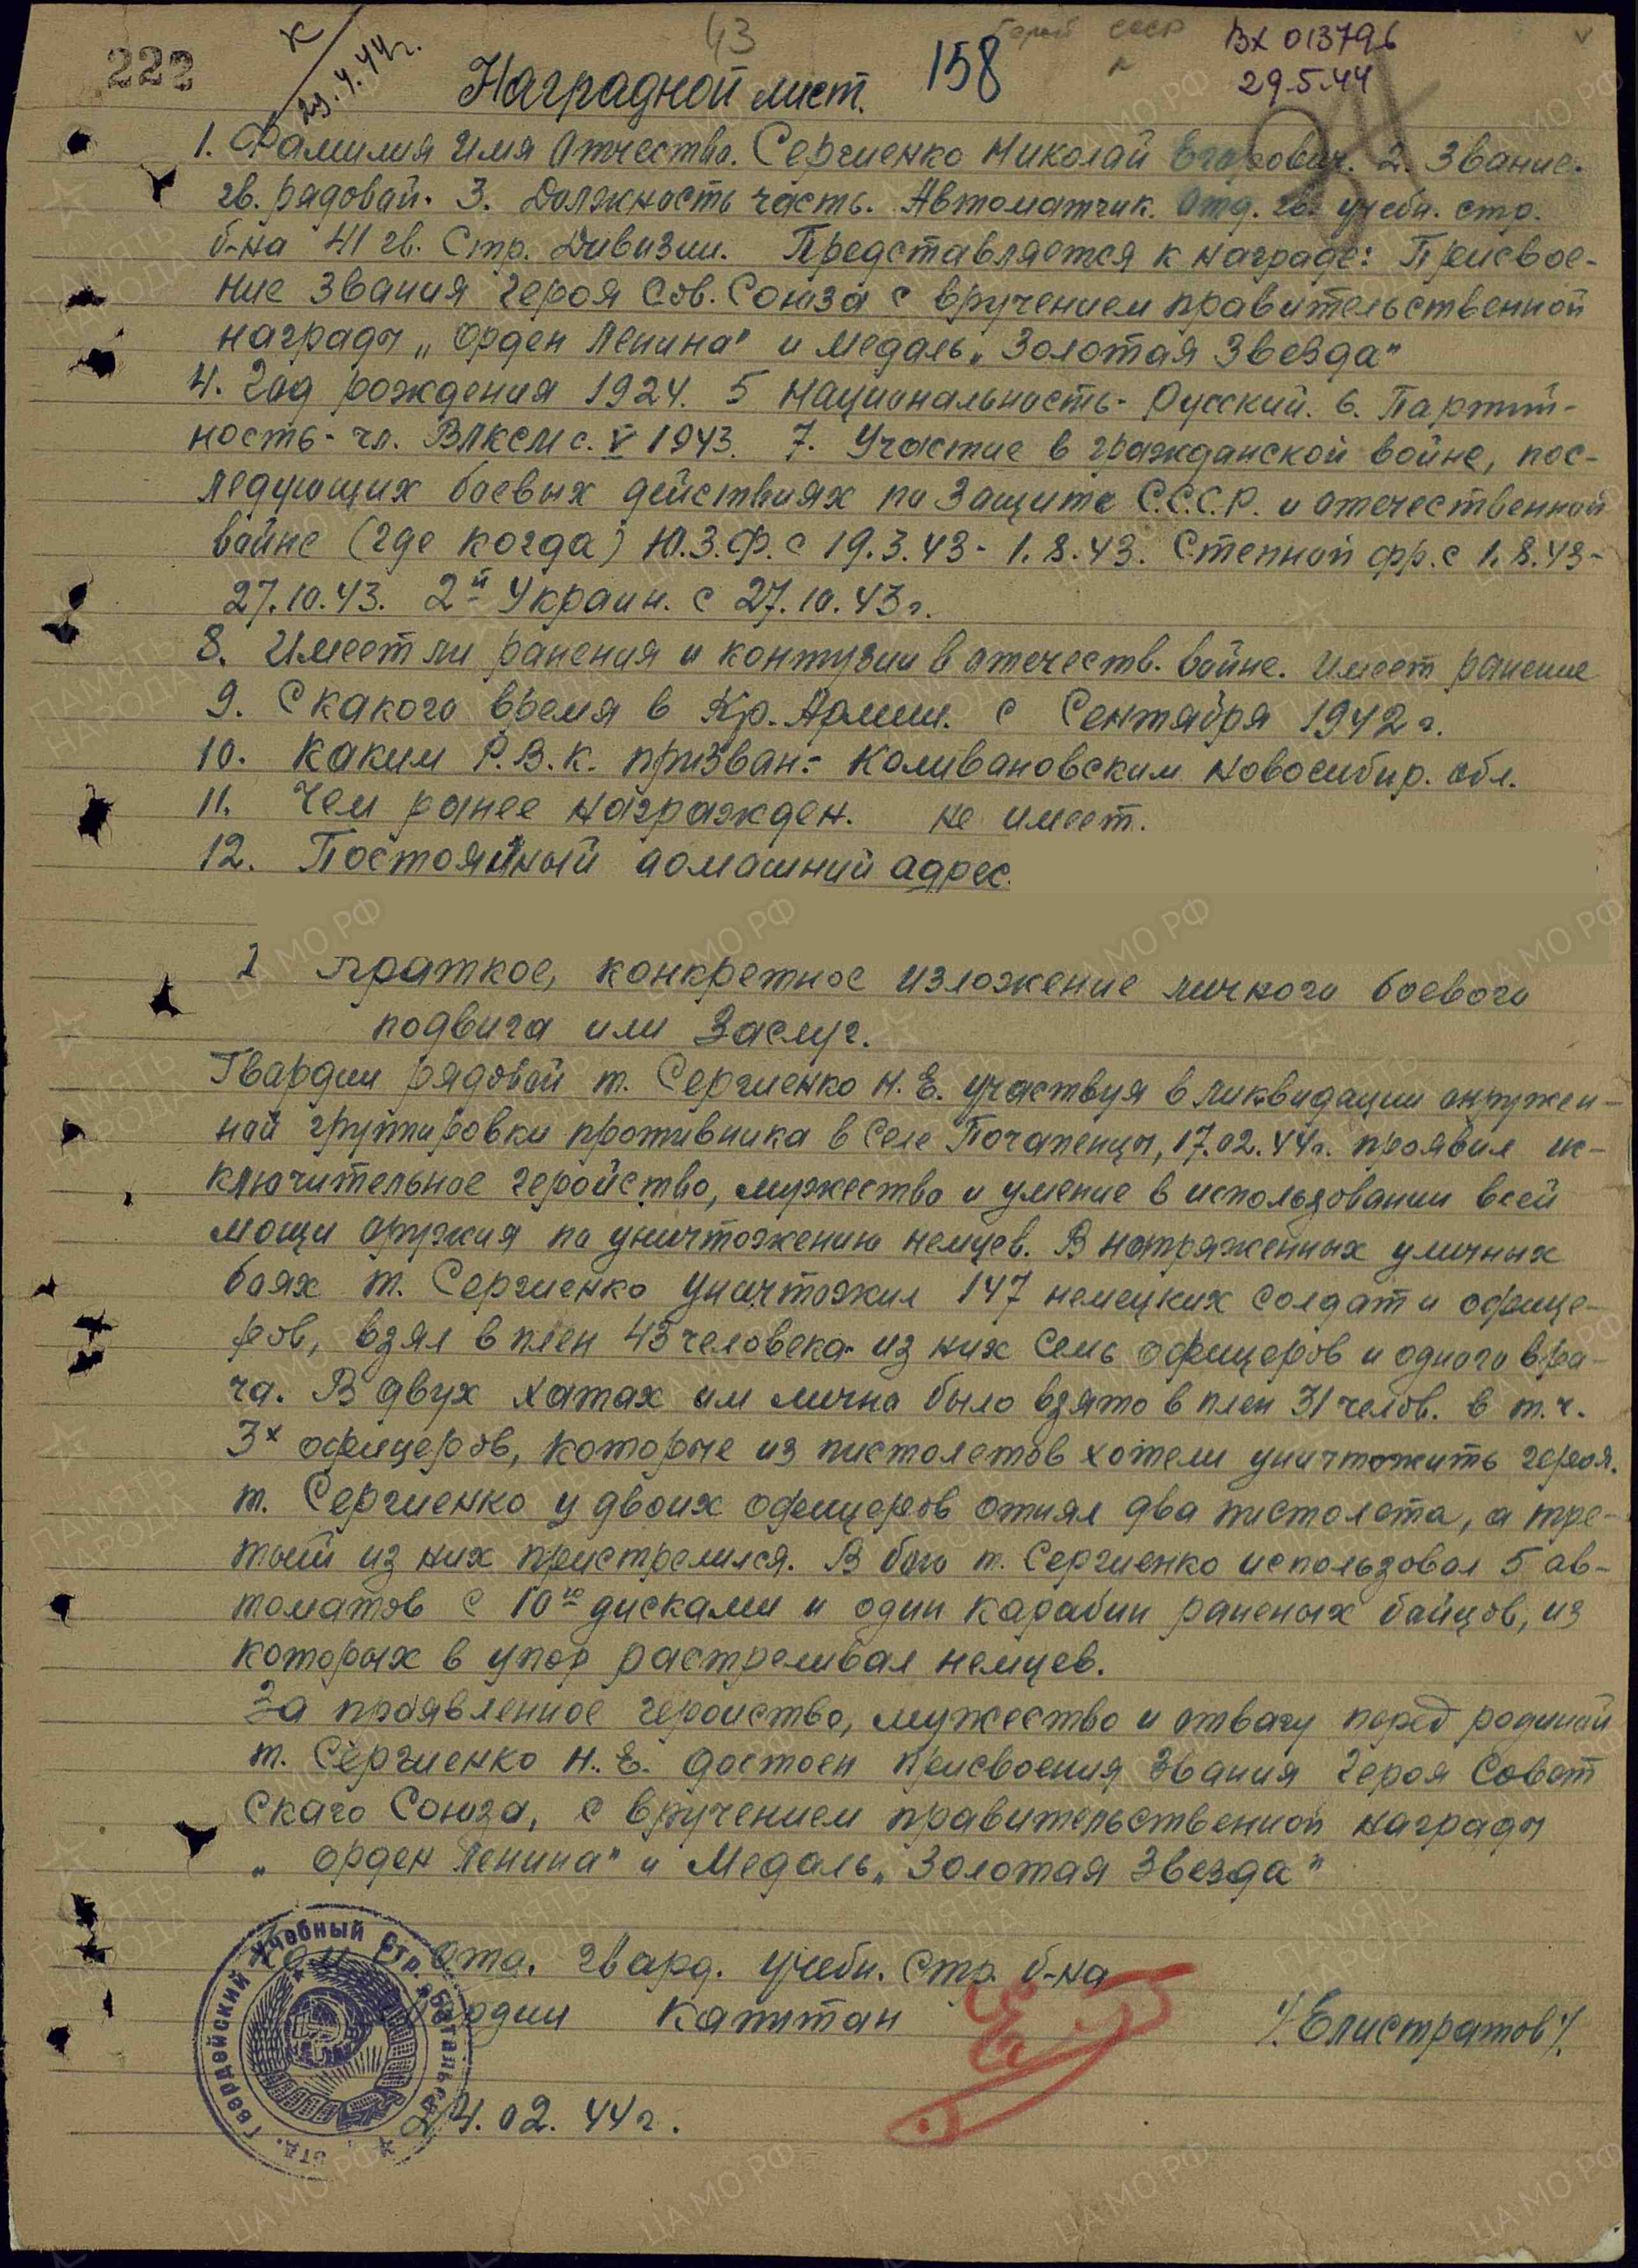 222
К
29.4.44г.
43
158
Герой СССР
Вх 013796
29.5.44
Наградной лист.
1. Фамилия Имя Отчество. Сергиенко Николай Егорович. 2. Звание.
гв. рядовой. 3. Должность часть. Автоматчик. Отд. гв. учебн. стр.
б-на 41 гв. Стр. Дивизии. Представляется к награде: Присвое-
ние звания Героя Сов. Союза с вручением правительственной
награды „Орден Ленина" и медаль „Золотая Звезда"
4. Год рождения 1924. 5 Национальность- Русский. 6. Партий-
ность- чл. ВЛКСМ с. V 1943. 7. Участие в гражданской войне, пос-
ледующих боевых действиях по защите С.С.С.Р. и отечественной
войне (где когда) Ю.З.Ф. с 19.3.43- 1.8.43. Степной фр. с 1.8.43-
27.10.43. 2й Украин. с 27.10.43г.
8. Имеет ли ранения и контузии в отечеств. войне. Имеет ранение
9. С какого время в Кр. Армии. с Сентября 1942 г.
10. Каким Р.В.К. призван.- Коливановским Новосибир. обл.
11. Чем ранее награжден. не имеет.
12. Постоянный домашний адрес.
1 Краткое, конкретное изложение личного боевого
подвига или заслуг.
Гвардии рядовой т. Сергиенко Н. Е. участвуя в ликвидации окружен-
ной группировки противника в селе Почапенцы, 17.02.44г. проявил ис-
ключительное геройство, мужество и умение в использовании всей
мощи оружия по уничтожению немцев. В напряженных уличных
боях т. Сергиенко уничтожил 147 немецких солдат и офице-
ров, взял в плен 43 человека- из них семь офицеров и одного вра-
ча. В двух хатах им лично было взято в плен 31 челов. в т.ч.
3х офицеров, которые из пистолетов хотели уничтожить героя.
т. Сергиенко у двоих офицеров отнял два пистолета, а тре-
тий из них пристрелился. В бою т. Сергиенко использовал 5 ав-
томатов с 10ю дисками и один карабин раненых бойцов, из
которых в упор растреливал немцев.
За проявленное геройство, мужество и отвагу перед родиной
т. Сергиенко Н. Е. достоен присвоения звания Героя Совет
ского Союза, с вручением правительственной награды
„Орден Ленина" и Медаль „Золотая Звезда"
Ком-р Отд. гвард. учебн. Стр. б-на
гвардии Капитан /Елистратов/.
24.02.44г.
Отд. Гвардейский Учебный Стр. Батальон
ПАМЯТЬ НАРОДА
ЦА МО РФ